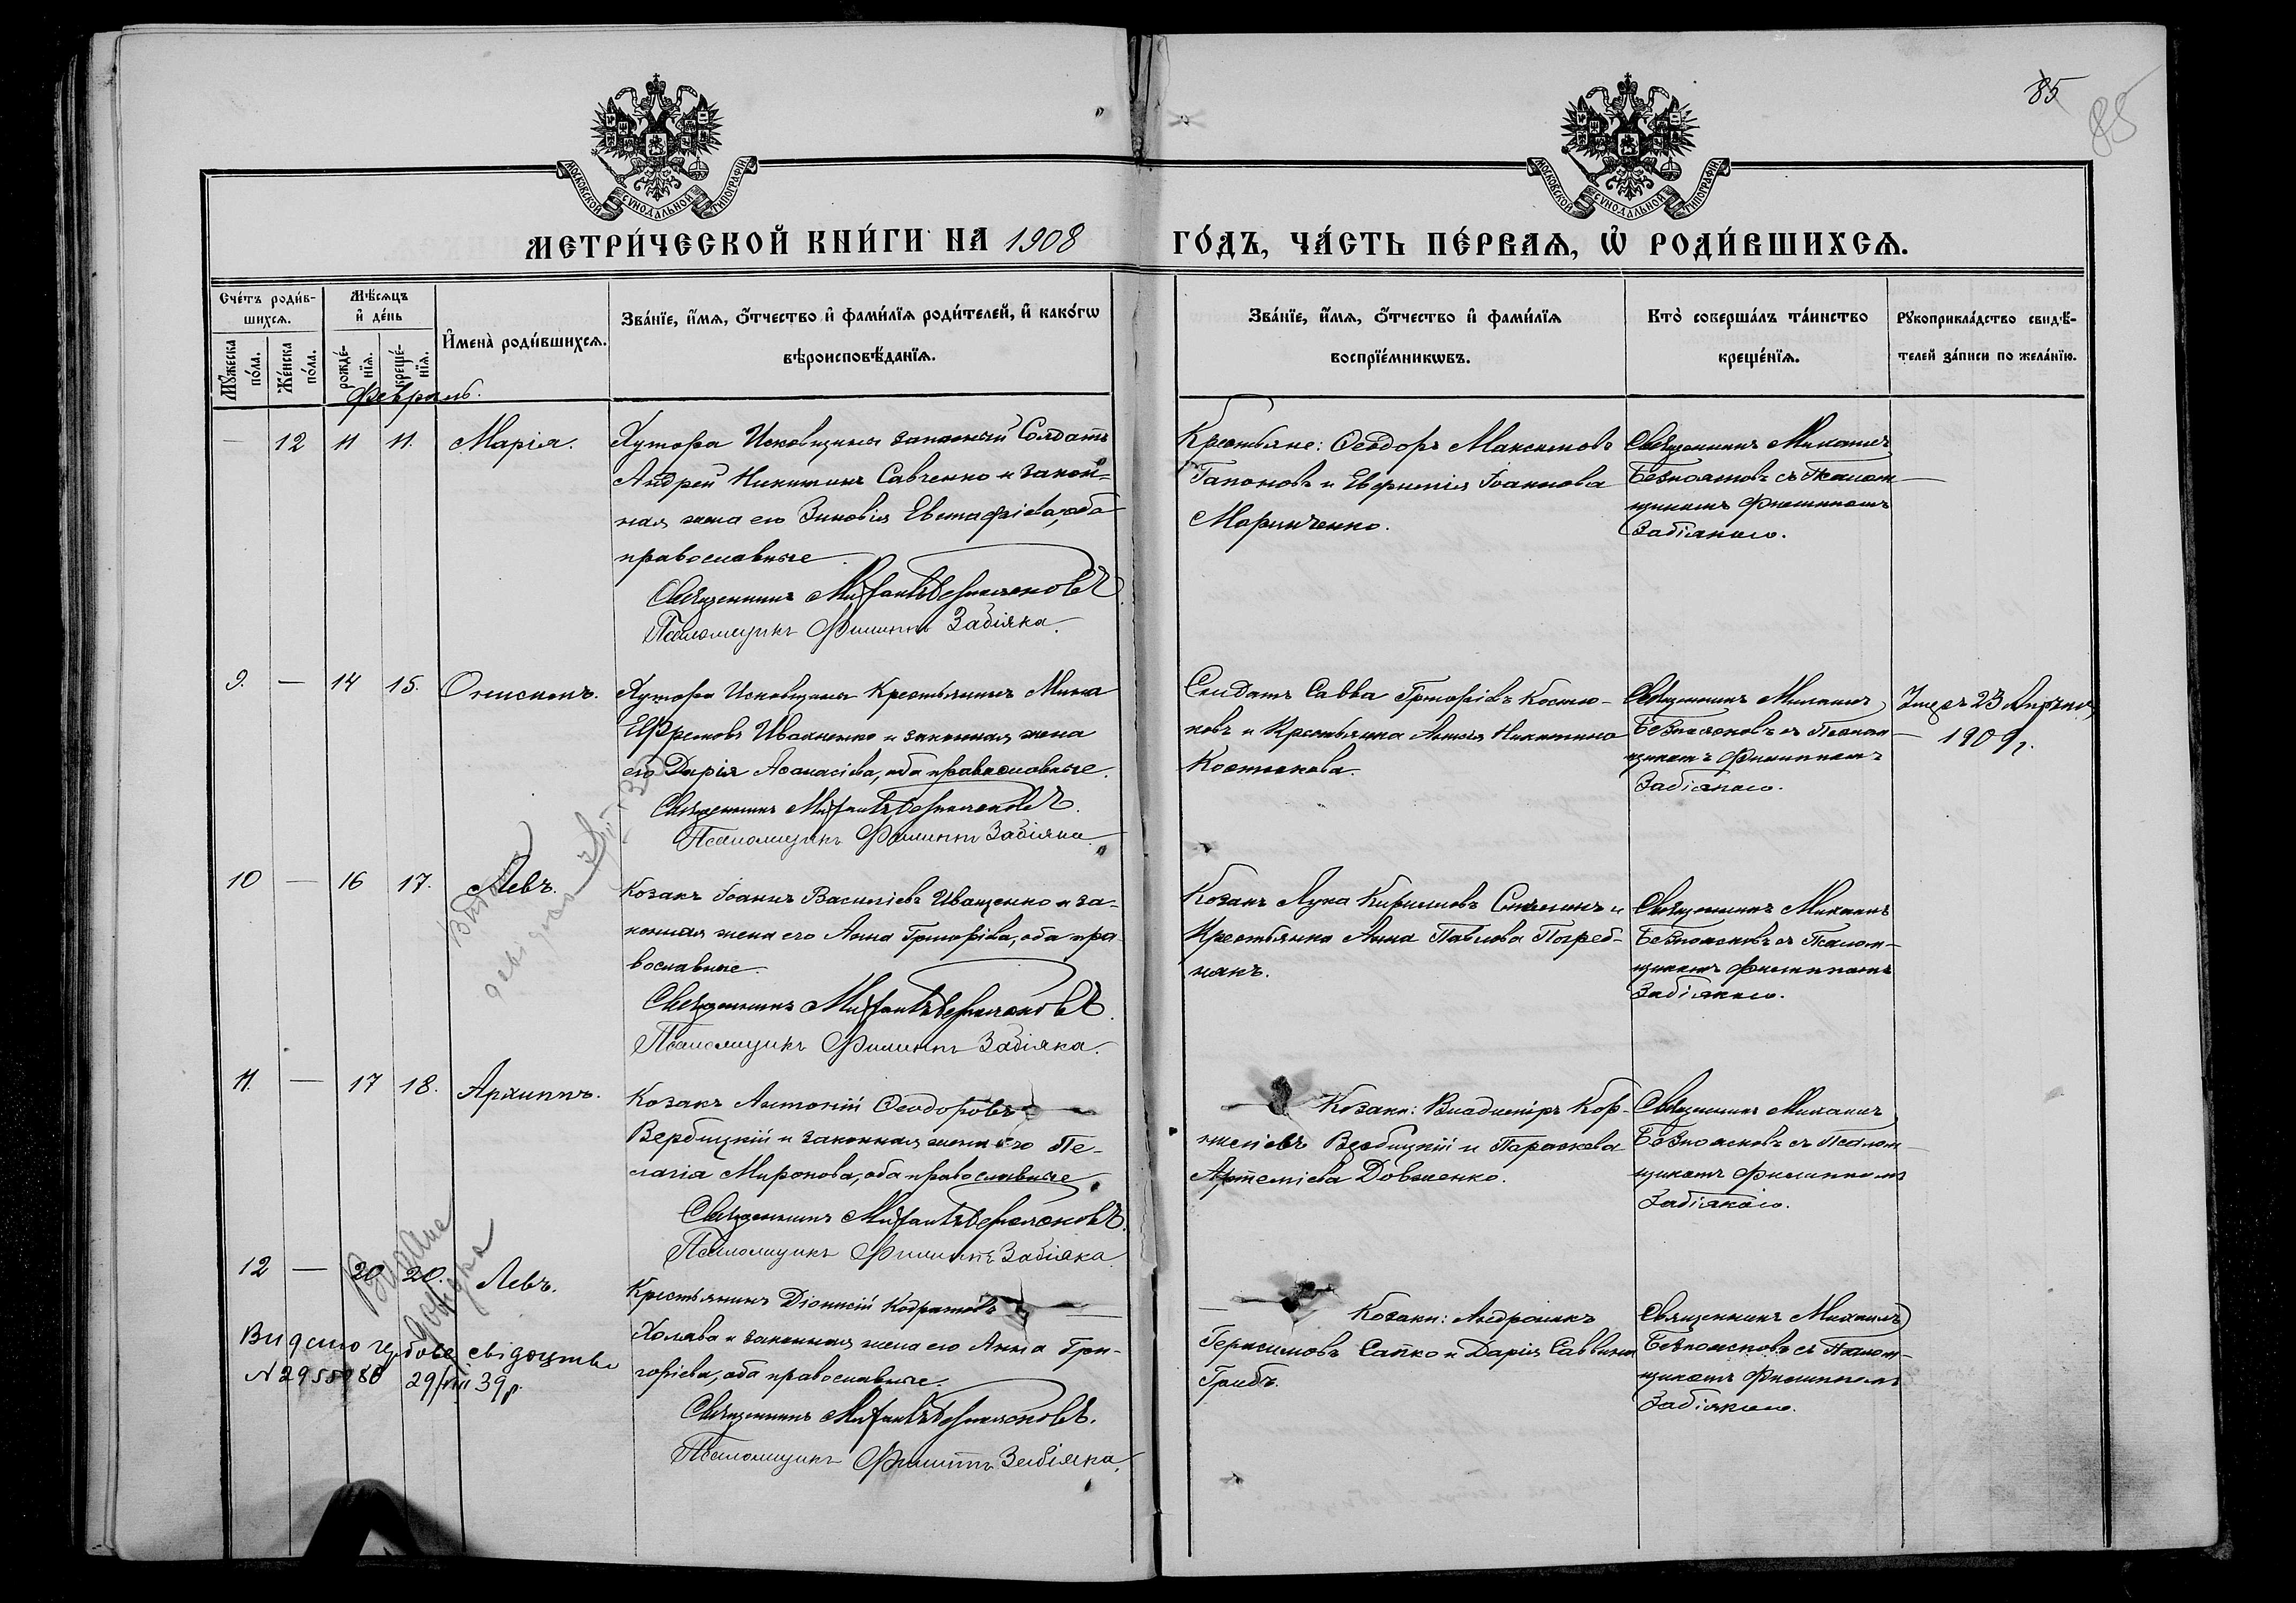 85
85
МОСКОВСКОЙ СѴНОДАЛЬНОЙ ТИПОГРАФІИ
МОСКОВСКОЙ СѴНОДАЛЬНОЙ ТИПОГРАФІИ
МЕТРИ́ЧЕСКОЙ КНИ́ГИ НА 1908
ГО́ДЪ, ЧА́СТЬ ПЕ́РВАѦ, Ѡ҆ РОДИ́ВШИХСѦ.
Сче́тъ роди́в-
шихсѧ.
Мꙋ́жеска по́ла.
Же́нска по́ла.
Мѣ́сѧцъ
и҆ де́нь
рожде́-
нїѧ.
креще́-
нїѧ.
И҆мена̀ роди́вшихсѧ.
Зва́нїе, и҆́мѧ, ѻ҆́тчество и҆ фами́лїѧ роди́телей, и҆ како́гѡ
вѣроисповѣ́данїѧ.
Зва́нїе, и҆́мѧ, ѻ҆́тчество и҆ фами́лїѧ
воспрїе́мникѡвъ.
Кто̀ соверша́лъ та́инство
креще́нїѧ.
Рꙋкоприкла́дство свидѣ́-
телей за́писи по жела́нїю.
Февраль.
— 12 11 11. Марія.
Хутора Исковщины запасный Солдатъ
Андрей Никитинъ Савченко и закон-
ная жена его Зиновія Евстафіева, оба
православные.
Священникъ
Псаломщикъ Филиппъ Забіяка.
Крестьяне: Ѳеодоръ Максимовъ
Гапоновъ и Евфимія Іоаннова
Маринченко.
Священникъ Михаилъ
Безпоясковъ съ Псалом-
щикомъ Филиппомъ
Забіякою.
9. — 14 15. Онисимъ.
Хутора Исковщины Крестьянинъ Мина
Ефремовъ Иваненко и законная жена
его Дарія Аѳанасіева, оба православные.
Священникъ
Псаломщикъ Филиппъ Забіяка.
Солдатъ Савва Григоріевъ Костю-
ковъ и Крестьянка Никитина
Костюкова.
Священникъ Михаилъ
Безпоясковъ съ Псалом-
щикомъ Филиппомъ
Забіякою.
Умеръ 23 Апрѣля
1909 г.
10 — 16 17. Левъ.
Козакъ Іоаннъ Василіевъ Иващенко и за-
конная жена его Анна Григоріева, оба пра-
вославные.
Священникъ
Псаломщикъ Филиппъ Забіяка.
Козакъ Лука Кириловъ и
Крестьянка Анна Павлова Погреб-
някъ.
Священникъ Михаилъ
Безпоясковъ съ Псалом-
щикомъ Филиппомъ
Забіякою.
11. — 17 18. Архиппъ.
Козакъ Антоній Ѳеодоровъ
Вербицкій и законная жена его Пе-
лагіа Миронова, оба православные.
Священникъ
Псаломщикъ Филиппъ Забіяка.
Козаки: Владиміръ Кор-
ниліевъ Вербицкій и Параскева
Артеміева Довженко.
Священникъ Михаилъ
Безпоясковъ съ Псалом-
щикомъ Филиппомъ
Забіякою.
12 — 20 20. Левъ.
Видане
довідка
Видано гербове свідоцтво
29/VIII 39 р.
Крестьянинъ Діонисій Кодратовъ
Холява и законная жена его Анна Гри-
горіева, оба православные.
Священникъ
Псаломщикъ Филиппъ Забіяка.
Козаки: Андроникъ
Герасимовъ Сапко и Дарія Саввина
Грибъ.
Священникъ Михаилъ
Безпоясковъ съ Псалом-
щикомъ Филиппомъ
Забіякою.